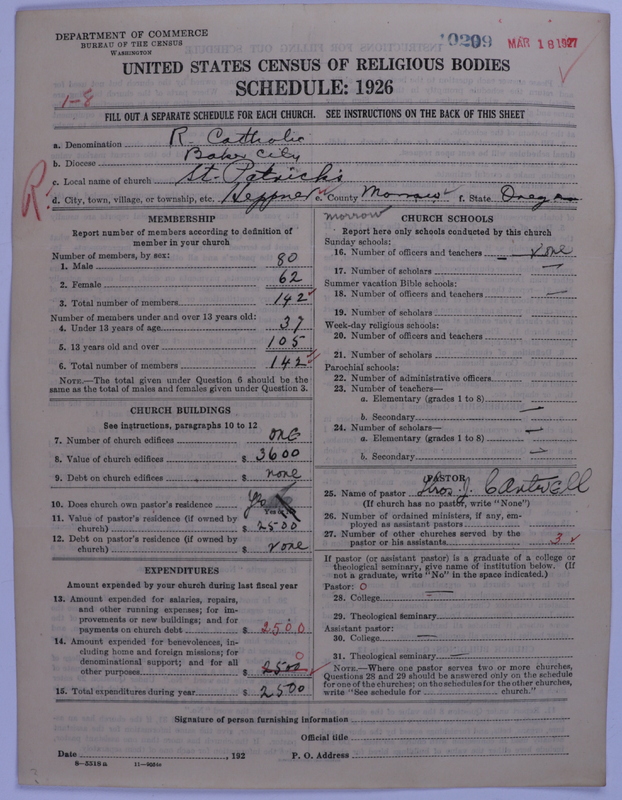 DEPARTMENT OF COMMERCE
BUREAU OF THE CENSUS
WASHINGTON
10209
MAR 18 1927
UNITED STATES CENSUS OF RELIGIOUS BODIES
SCHEDULE: 1926
1-8
FILL OUT A SEPARATE SCHEDULE FOR EACH CHURCH. SEE INSTRUCTIONS ON THE BACK OF THIS SHEET
a. Denomination R. Catholic
b. Diocese Baker City
c. Local name of church St. Patrick's
R.
d. City, town, village, or township, etc. Heppner e. County Morrow f. State Oregon
morrow
MEMBERSHIP
Report number of members according to definition of
member in your church
Number of members, by sex:
1. Male 80
2. Female 62
3. Total number of members 142
Number of members under and over 13 years old:
4. Under 13 years of age 37
5. 13 years old and over 105
6. Total number of members 142
NOTE.—The total given under Question 6 should be the
same as the total of males and females given under Question 3.
CHURCH BUILDINGS
See instructions, paragraphs 10 to 12
7. Number of church edifices one
8. Value of church edifices $ 3600
9. Debt on church edifices $ none
10. Does church own pastor's residence Yes
11. Value of pastor's residence (if owned by
church) $ 2500
12. Debt on pastor's residence (if owned by
church) $ none
EXPENDITURES
Amount expended by your church during last fiscal year
13. Amount expended for salaries, repairs,
and other running expenses; for im-
provements or new buildings; and for
payments on church debt $ 2500
14. Amount expended for benevolences, in-
cluding home and foreign missions; for
denominational support; and for all
other purposes $ 2500 0
15. Total expenditures during year $ 2500
CHURCH SCHOOLS
Report here only schools conducted by this church
Sunday schools:
16. Number of officers and teachers none
17. Number of scholars —
Summer vacation Bible schools:
18. Number of officers and teachers —
19. Number of scholars
Week-day religious schools:
20. Number of officers and teachers
21. Number of scholars
Parochial schools:
22. Number of administrative officers
23. Number of teachers—
a. Elementary (grades 1 to 8)
b. Secondary —
24. Number of scholars—
a. Elementary (grades 1 to 8) —
b. Secondary —
PASTOR
25. Name of pastor Thos. J. Cantwell
(If church has no pastor, write "None")
26. Number of ordained ministers, if any, em-
ployed as assistant pastors
27. Number of other churches served by the
pastor or his assistants 3
If pastor (or assistant pastor) is a graduate of a college or
theological seminary, give name of institution below. (If
not a graduate, write "No" in the space indicated.)
Pastor: 0
28. College —
29. Theological seminary
Assistant pastor:
30. College —
31. Theological seminary —
NOTE.—Where one pastor serves two or more churches,
Questions 28 and 29 should be answered only on the schedule
for one of the churches; on the schedules for the other churches,
write "See schedule for church."
Signature of person furnishing information
Official title
Date , 192 P. O. Address
8-5518a